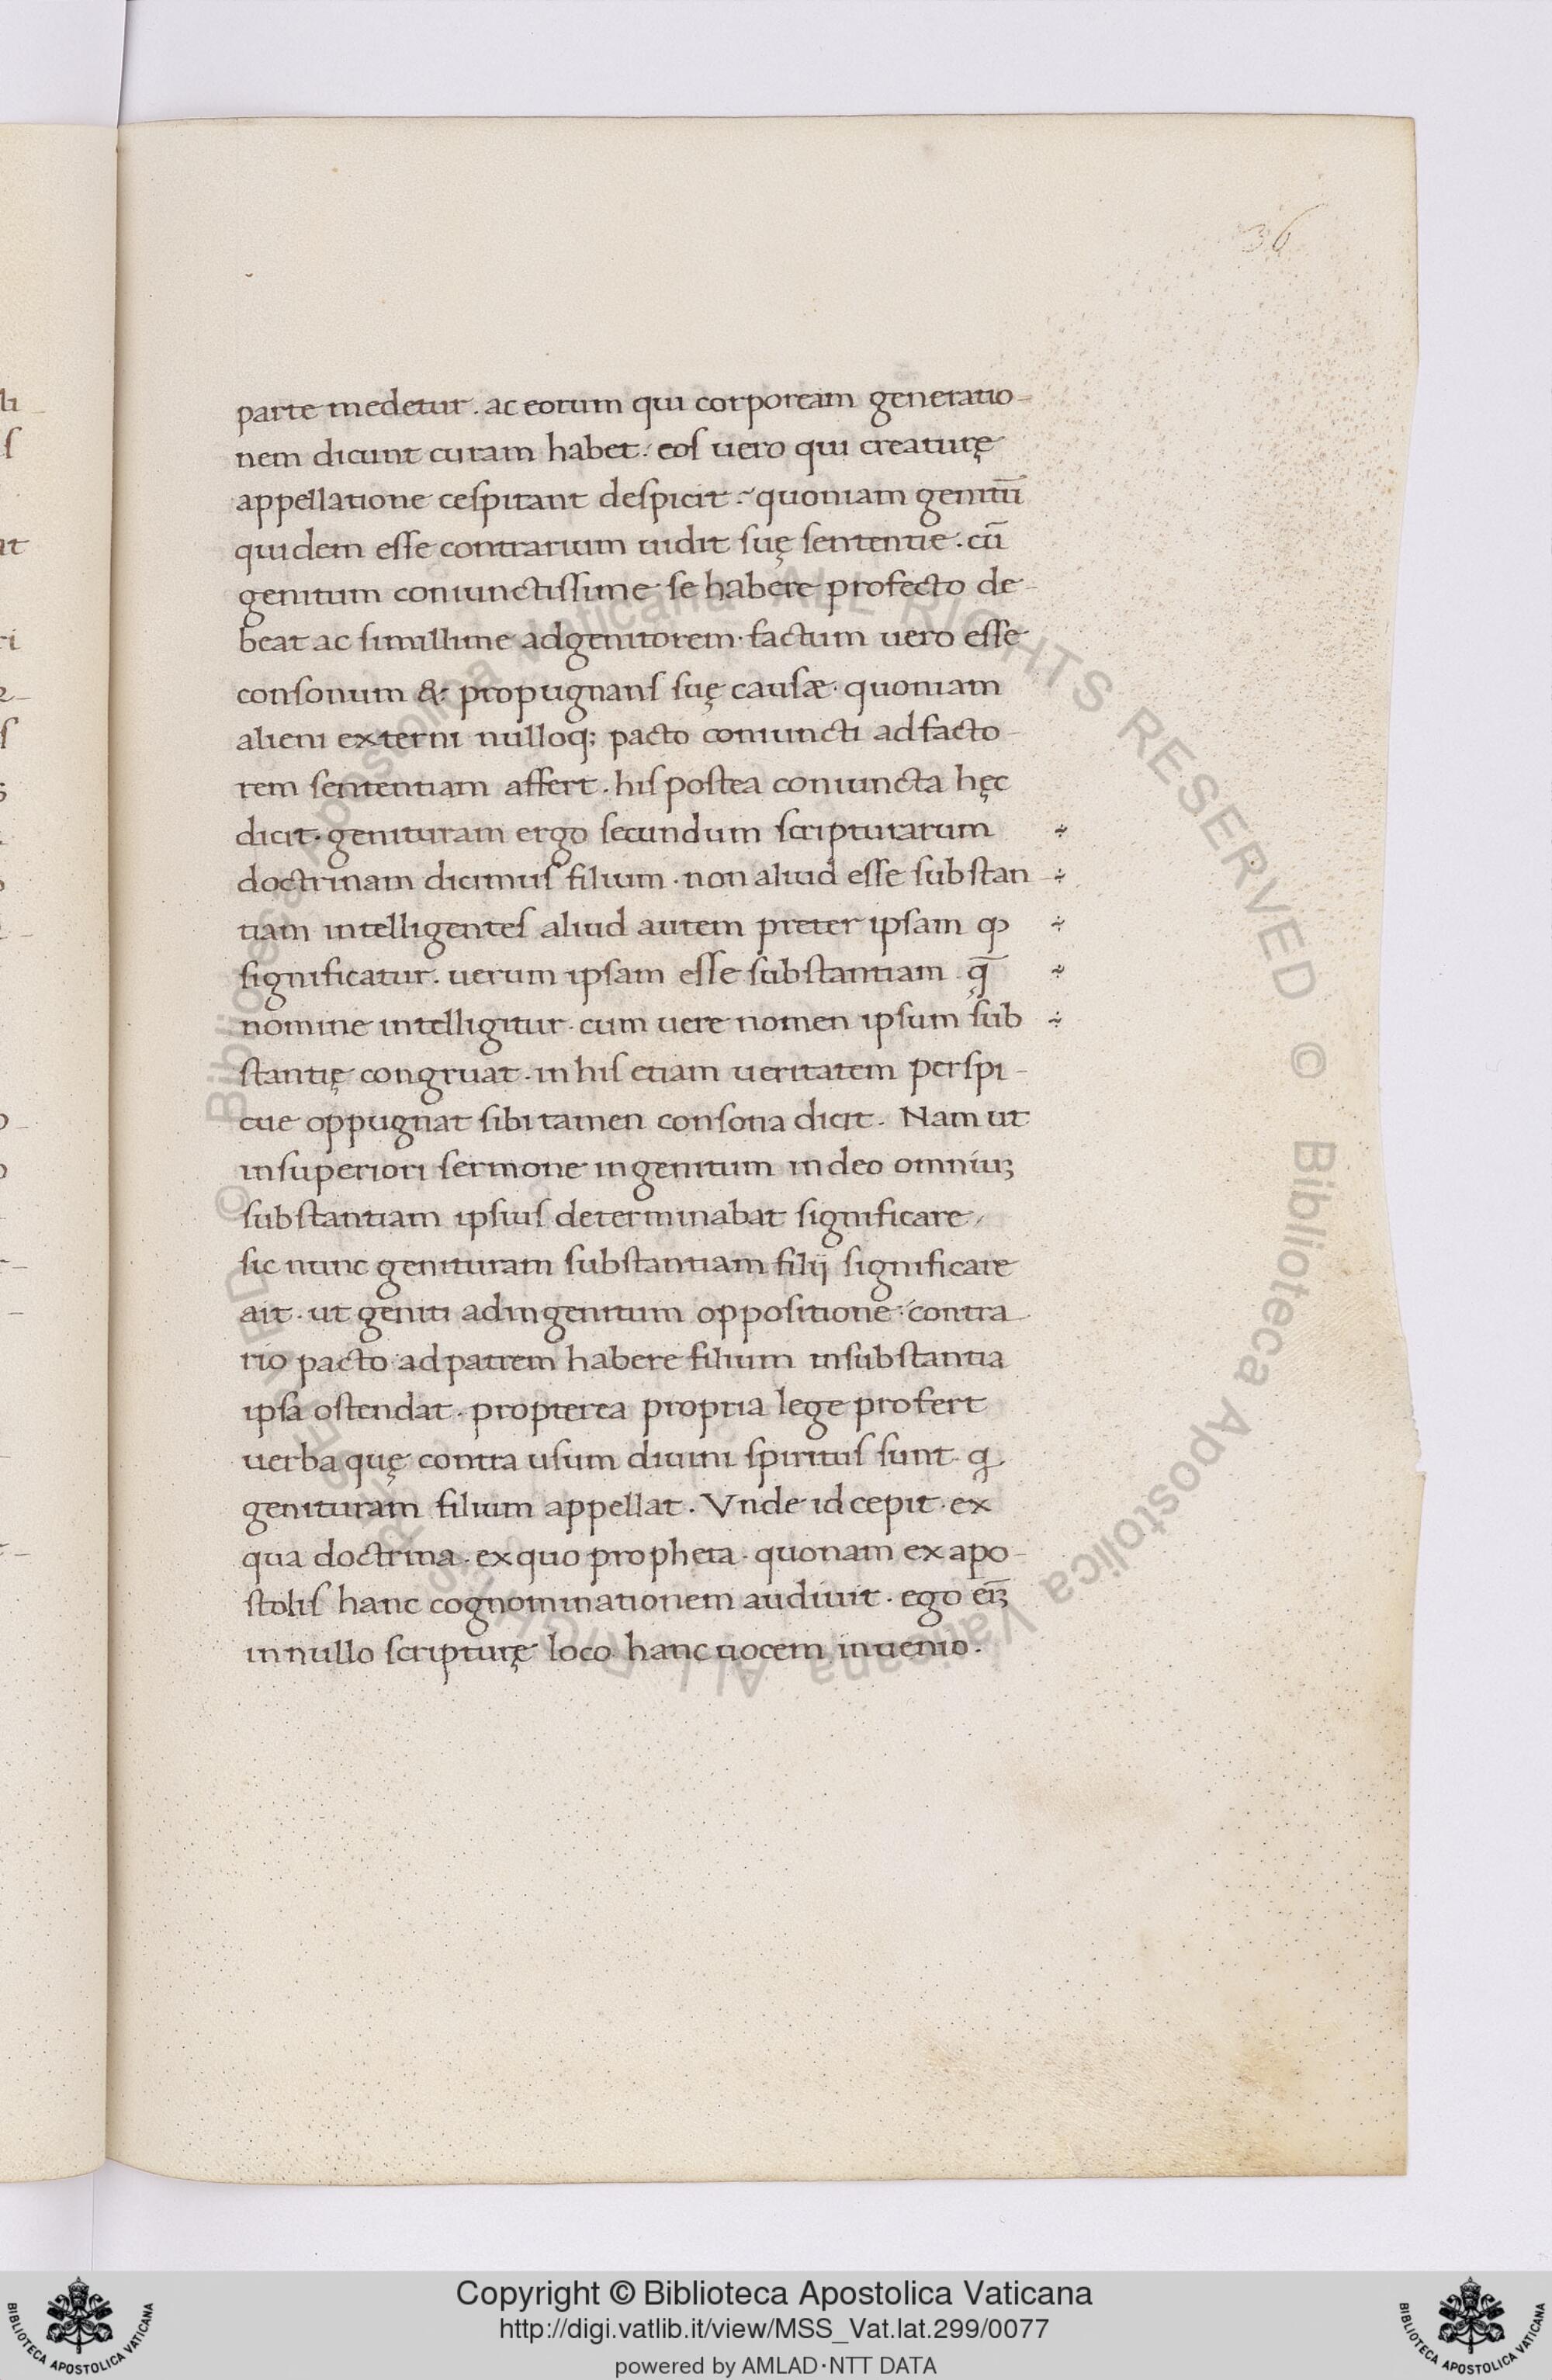 36
parte medetur. ac eorum qui corpoream generatio-
nem dicunt curam habet. eoſ uero qui creaturę
appellatione ceſpitant deſpicit. quoniam genitū
quidem eſſe contrarium uidit ſuę ſententie. cū
genitum coniunctiſſime ſe habere profecto de-
beat ac ſimillime ad genitorem. factum uero eſſe
conſonum & propugnanſ ſuę cauſæ. quoniam
alieni externi nulloq; pacto coniuncti ad facto-
rem ſententiam affert. hiſ poſtea coniuncta hęc
dicit. genituram ergo ſecundum ſcripturarum ÷
doctrinam dicimuſ filium. non aliud eſſe ſubſtan- ÷
tiam intelligenteſ aliud autem preter ipſam ꝙ ÷
ſignificatur. uerum ipſam eſſe ſubſtantiam. q̄ ÷
nomine intelligitur. cum uere nomen ipſum ſub ÷
ſtantię congruat. in hiſ etiam ueritatem perſpi-
cue oppugnat ſibi tamen conſona dicit. Nam ut
in ſuperiori ſermone ingenitum in deo omniuꝫ
ſubſtantiam ipſiuſ determinabat ſignificare,
ſic nunc genituram ſubſtantiam filij ſignificare
ait. ut geniti ad ingenitum oppoſitione contra-
rio pacto ad patrem habere filium in ſubſtantia
ipſa oſtendat. propterea propria lege profert
uerba quę contra uſum diuini ſpirituſ ſunt. ꝗ
genituram filium appellat. Vnde id cepit. ex
qua doctrina. ex quo propheta. quonam ex apo-
ſtoliſ hanc cognominationem audiuit. ego eīꝫ
in nullo ſcripturę loco hanc uocem inuenio.
© Biblioteca Apostolica Vaticana ALL RIGHTS RESERVED © Biblioteca Apostolica Vaticana ALL RIGHTS RESERVED
Copyright © Biblioteca Apostolica Vaticana
http://digi.vatlib.it/view/MSS_Vat.lat.299/0077
powered by AMLAD·NTT DATA
BIBLIOTECA APOSTOLICA VATICANA
BIBLIOTECA APOSTOLICA VATICANA